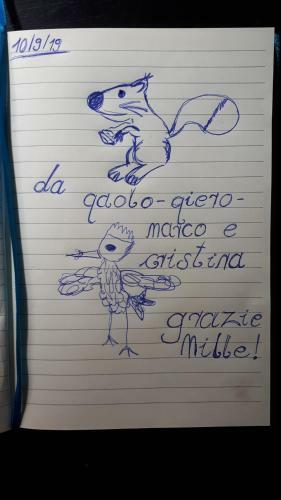 10/9/19
da
qaolo-qiero-
marco e
cristina
grazie
Mille!